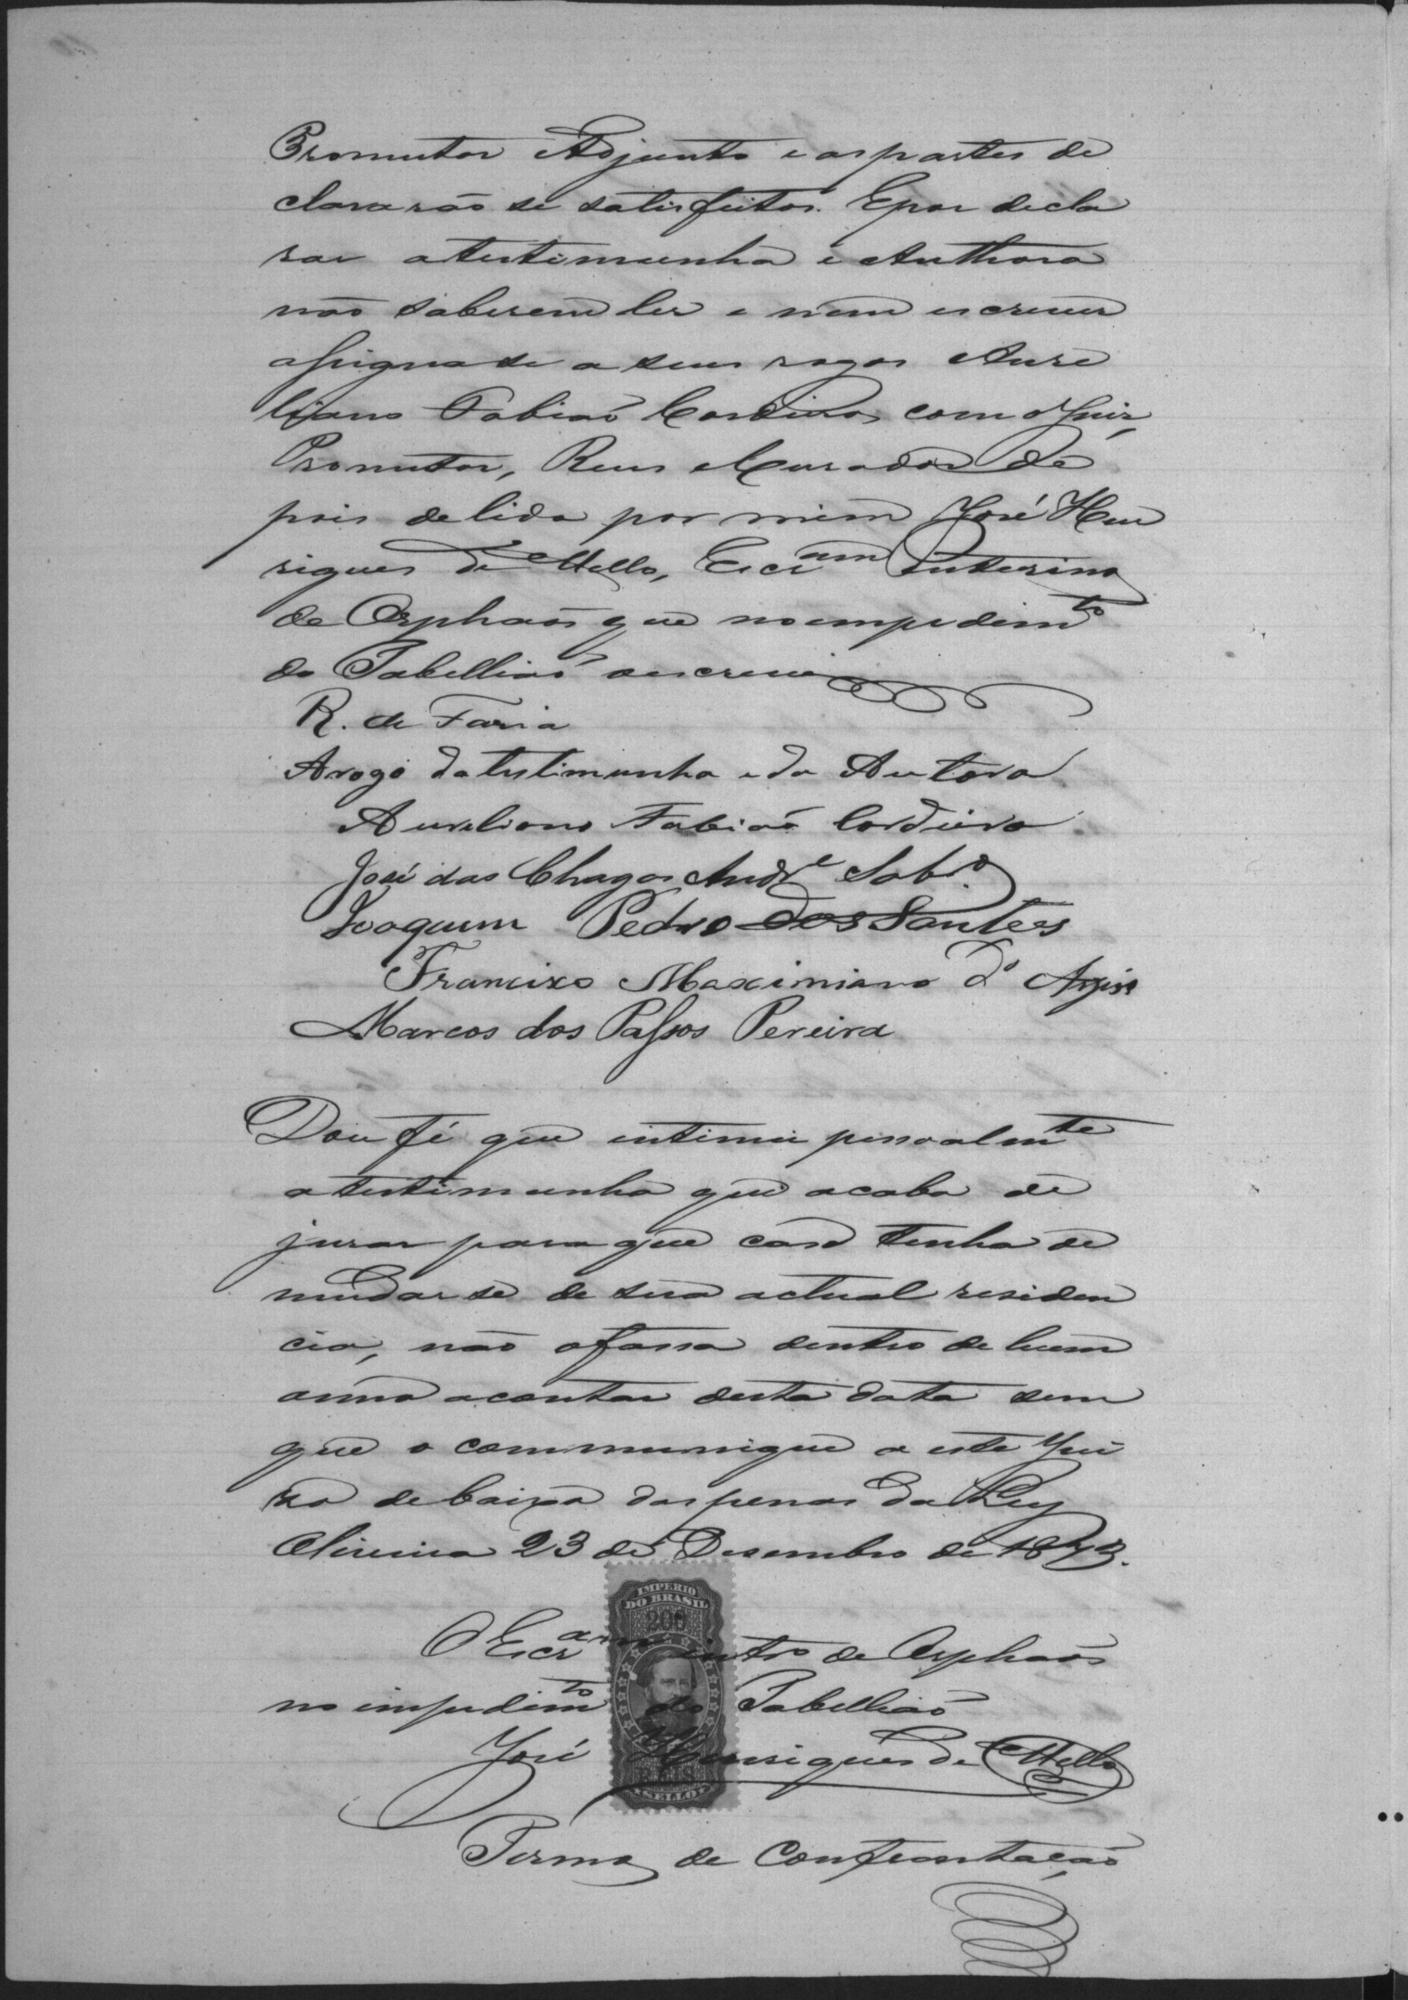 Promutor Adjunto e as partes de
clararão se satisfeitos. E por decla
rar a testimunha e Authora
não saberem ler e nem escrever
assigna se a seus rogos Aure
liano Fabião Cordeiro, com o Juiz,
Promutor, Reus e Curador de
pois de lida por mim José Hen
riques de Mello, Escr.am Interino
de Orphãos que no impedim.to
do Tabellião o escrevi
R. de Faria
Arogo da testimunha e da Autora
Aureliano Fabião Cordeiro.
José das Chagas Andr.e Sobr.o
Joaquim Pedro dos Santos
Francisco Maximiano d'
Marcos dos Passos Pereira
Dou fé que intimei pessoalm.te
a testimunha que acaba de
jurar para que caso tenha de
mudar se de sua actual residen
cia, não o fassa dentro de hum
anno a contar desta data sem
que o communique a este Jui
zo debaixo das penas da Ley
Oliveira 23 de Desembro de 1873.
IMPERIO
DO BRASIL
200
O Escr.am intr.o de Orphãos
no impedim.to do Tabellião
José Henriques de Mello
REIS
SELLO
Termo de Confrontação